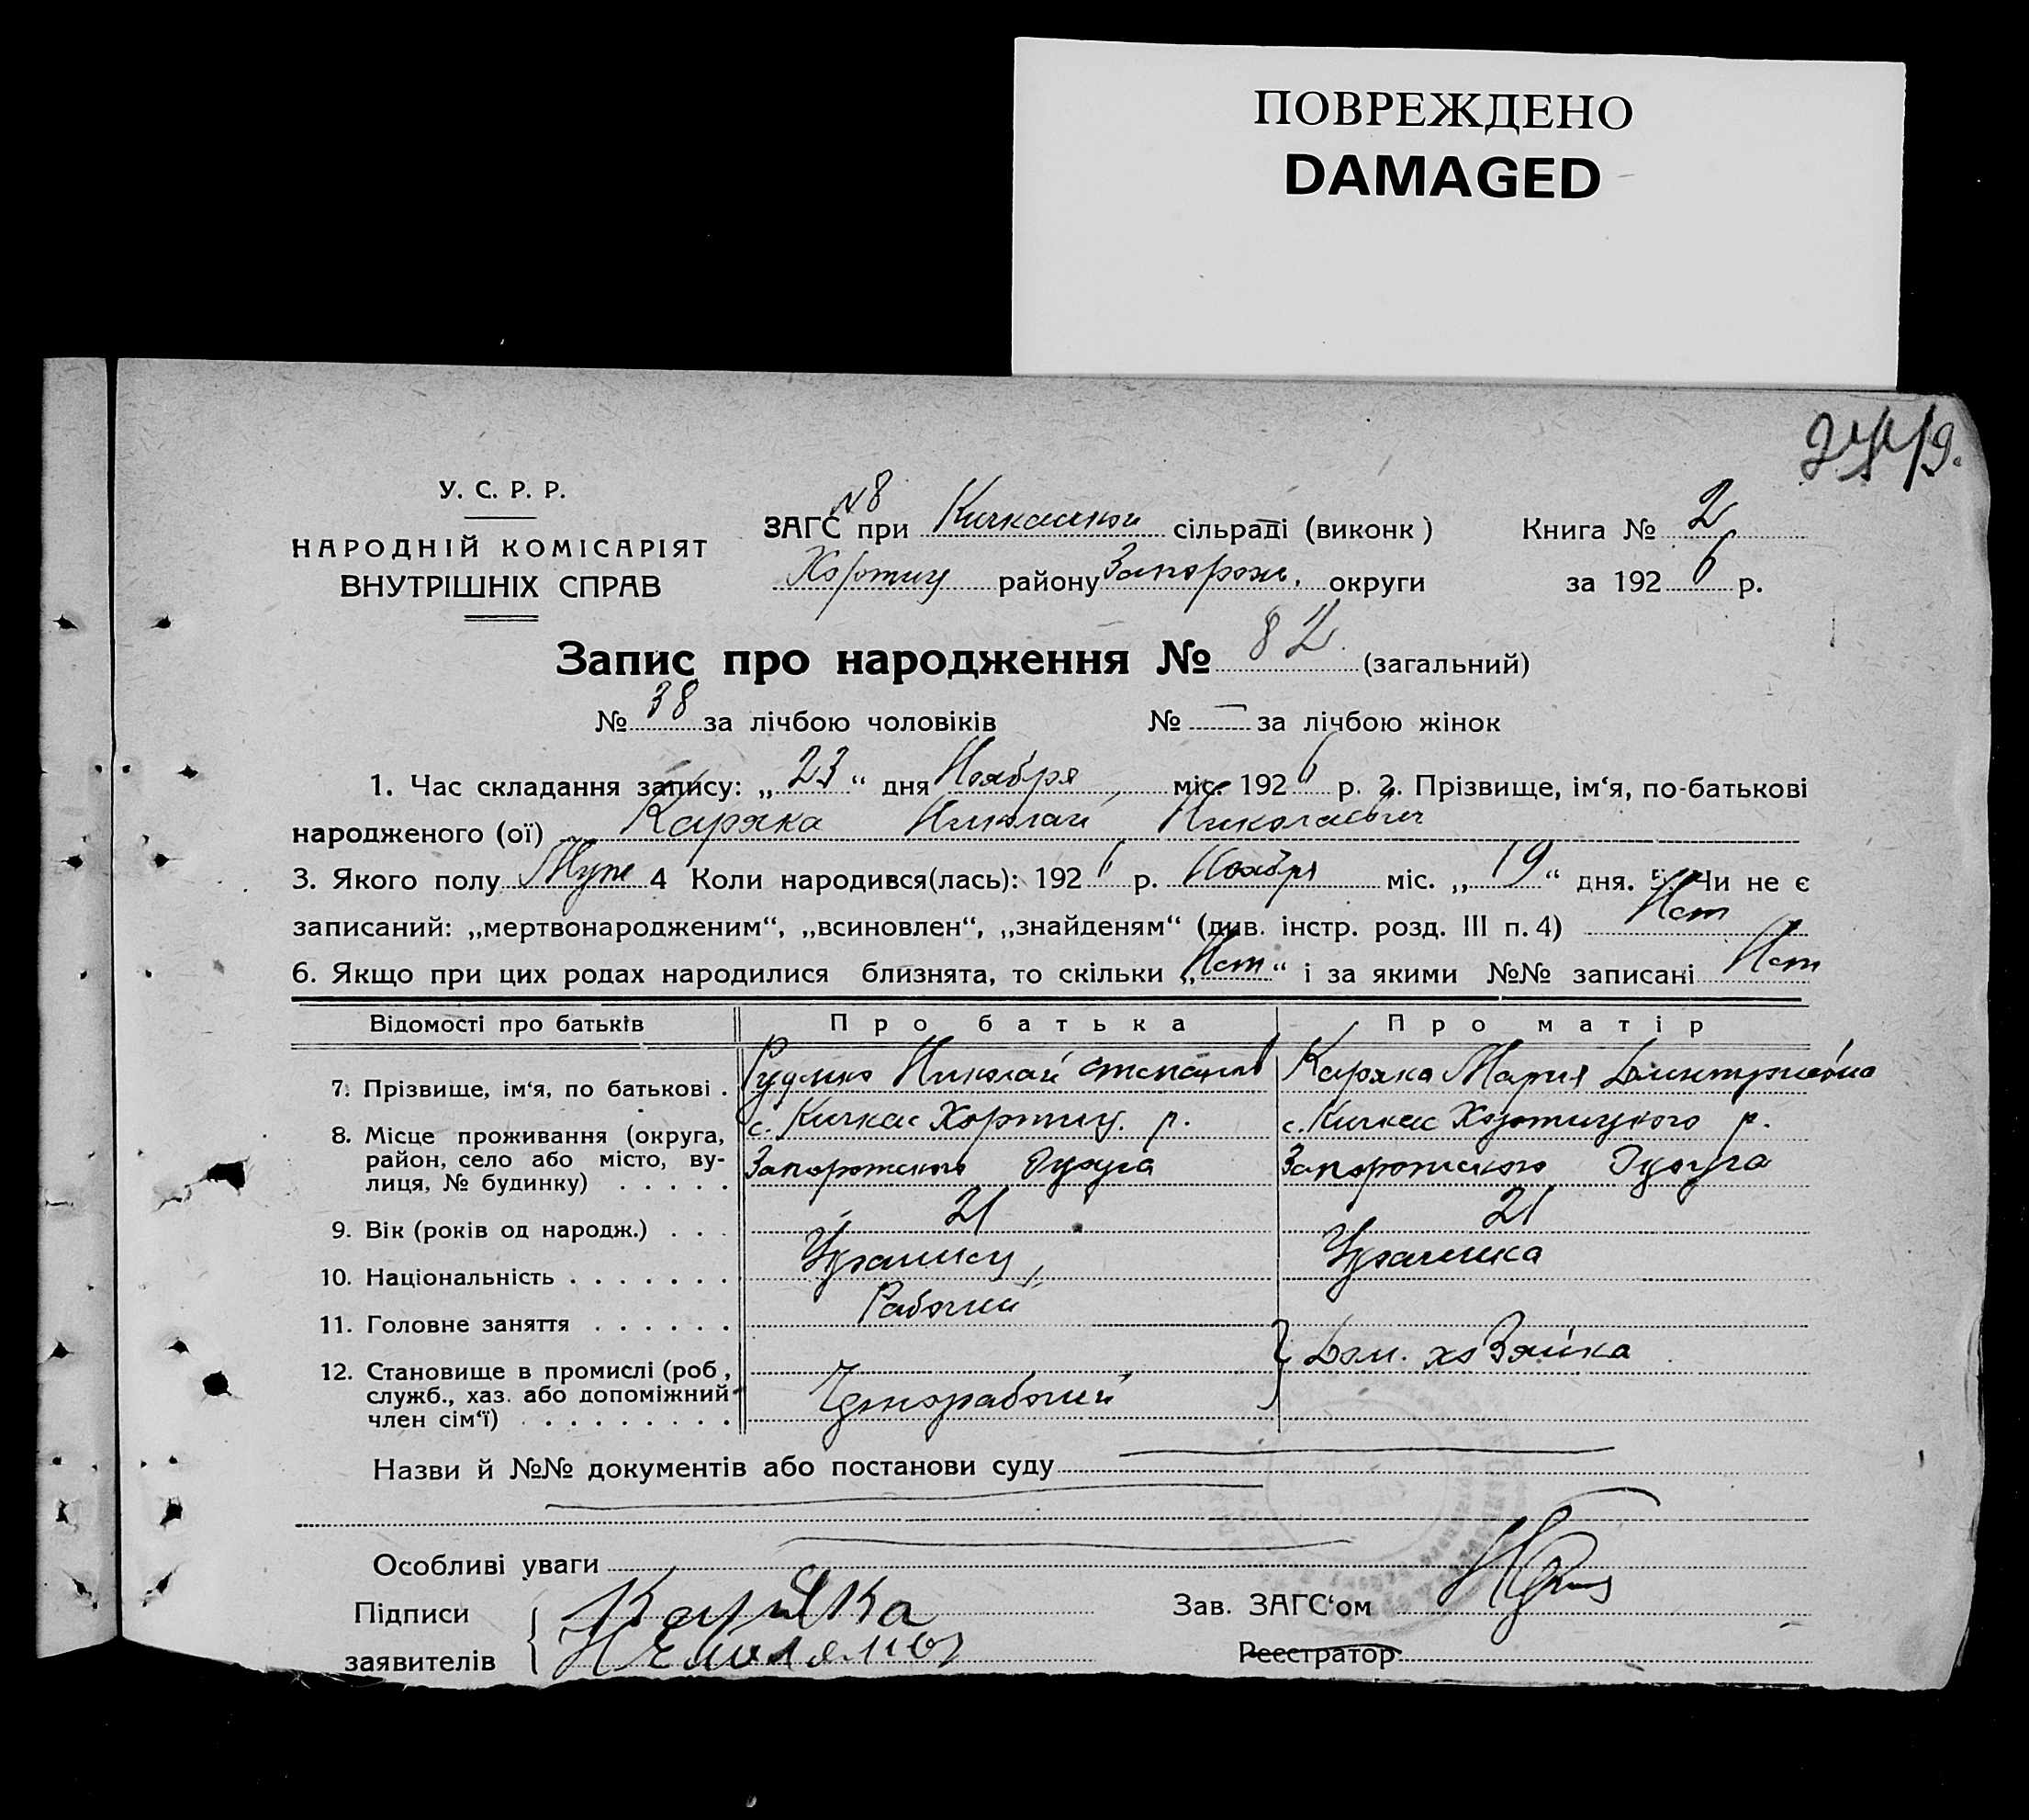 ПОВРЕЖДЕНО
DAMAGED
У. С. Р. Р.
НАРОДНІЙ КОМІСАРІЯТ
ВНУТРІШНІХ СПРАВ
N8
ЗАГС при Кичкасской сільраді (виконк ) Книга № 2
Хортиц району Запорож. округи за 192 6 р.
Запис про народження № 82 (загальний)
№ 38 за лічбою чоловіків № — за лічбою жінок
1. Час складання запису: „ 23 “ дня Ноября міс. 192 6 р. 2. Прізвище, ім‘я, по-батькові
народженого (ої) Каряка Николай Николаевич
3. Якого полу Муж 4 Коли народився(лась): 192 6 р. Ноября міс. „ 19 “ дня. 5. Чи не є
записаний: „мертвонародженим“, „всиновлен“, „знайденям“ (див. інстр. розд. III п. 4) Нет
6. Якщо при цих родах народилися близнята, то скільки „ Нет “ і за якими №№ записані Нет
Відомості про батьків Про батька Про матір
7. Прізвище, ім‘я, по батькові . Николай Степанов Каряка Мария Дмитриевна
8. Місце проживання (округа, район, село або місто, вулиця, № будинку) . . . . . с. Кичкас Хортиц. р. Запорожского Округа с. Кичкас Хортицкого р. Запорожского Округа
9. Вік (років од народж.) . . . 21 21
10. Національність . . . . . . . Украинец Украинка
11. Головне заняття . . . . . . Рабочий
12. Становище в промислі (роб , служб., хаз. або допоміжний член сім‘ї) . . . . . . . . . Чернорабочий Дом. хозяйка
Назви й №№ документів або постанови суду
Особливі уваги
Підписи Каряка Зав. ЗАГС‘ом
заявителів Реєстратор